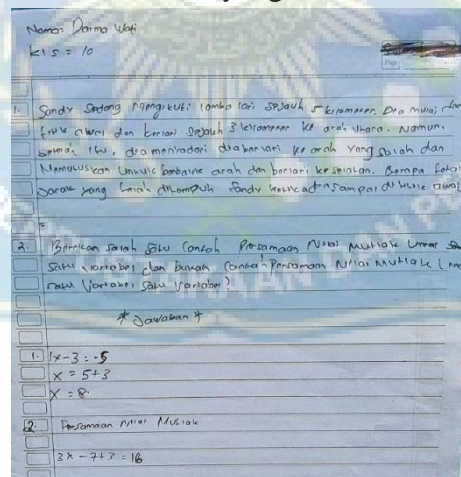 Nama: Darma Wati
Kls = 10
1. Sandy Sedang mengikuti lomba lari sejauh 5 kilometer. Dia mulai dari
titik awal dan berlari sejauh 3 kilometer ke arah utara. Namun,
setelah itu, dia menyadari dia berlari ke arah yang salah dan
Memutuskan untuk berbalik arah dan berlari ke selatan. Berapa total
Jarak yang telah ditempuh Sandy ketika dia sampai di titik awal
2. Berikan salah satu contoh Persamaan Nilai Mutlak Linear
satu variabel dan bukan contoh Persamaan Nilai Mutlak
satu Variabel satu variabel)
* Jawaban *
1. 1x-3 = -5
x = 5+3
x = 8.
2. Persamaan nilai Mutlak
3x - 7+3 = 16